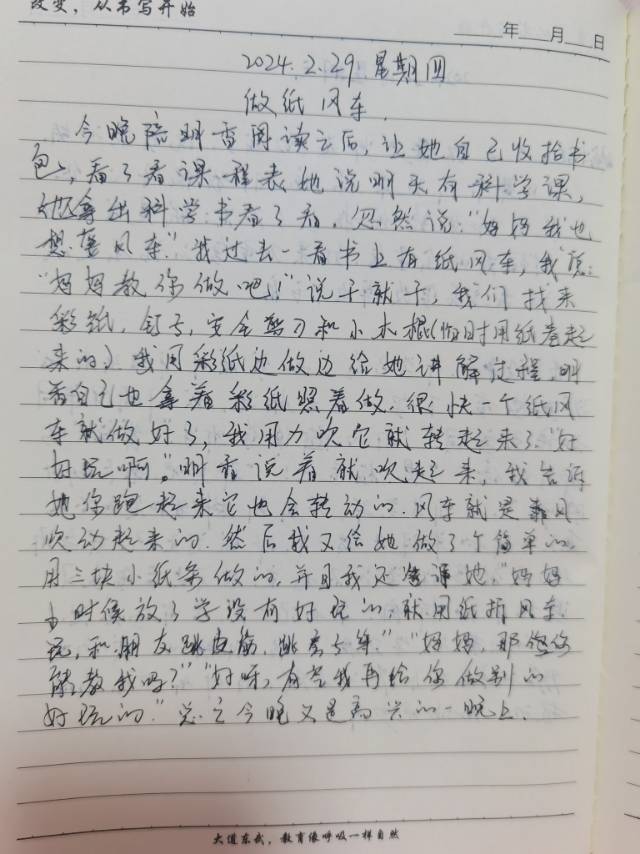 改变，从书写开始
年 月 日
2024.2.29 星期四
做纸风车
今晚陪明香阅读之后，让她自己收拾书
包，看了看课程表她说明天有科学课，
她拿出科学书看了看，忽然说："妈妈我也
想要风车."我过去一看书上有纸风车，我说：
"妈妈教你做吧！"说干就干，我们找来
彩纸，钉子，安全剪刀和小木棍(临时用纸卷起
来的)我用彩纸边做边给她讲解过程，明
香自己也拿着彩纸照着做.很快一个纸风
车就做好了，我用力吹它就转起来了."好
好玩啊。"明香说着就吹起来，我告诉
她你跑起来它也会转动的.风车就是靠风
吹动起来的.然后我又给她做了个简单的
用三块小纸条做的，并且我还告诉她，"妈妈
小时候放了学没有好玩的，就用纸折风车
玩，和朋友跳皮筋，跳房子等.""妈妈，那你
能教我吗？""好呀，有空我再给你做别的
好玩的."总之今晚又是高兴的一晚上.
大道东武，教育像呼吸一样自然